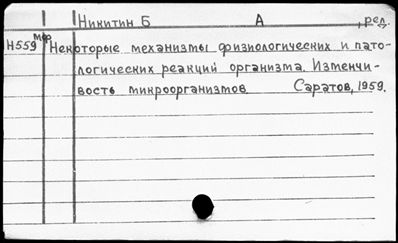 Никитин Б А, ред.
Н559 мфр Некоторые механизмы физиологических и пато-
логических реакций организма. Изменчи-
вость микроорганизмов Саратов, 1959.